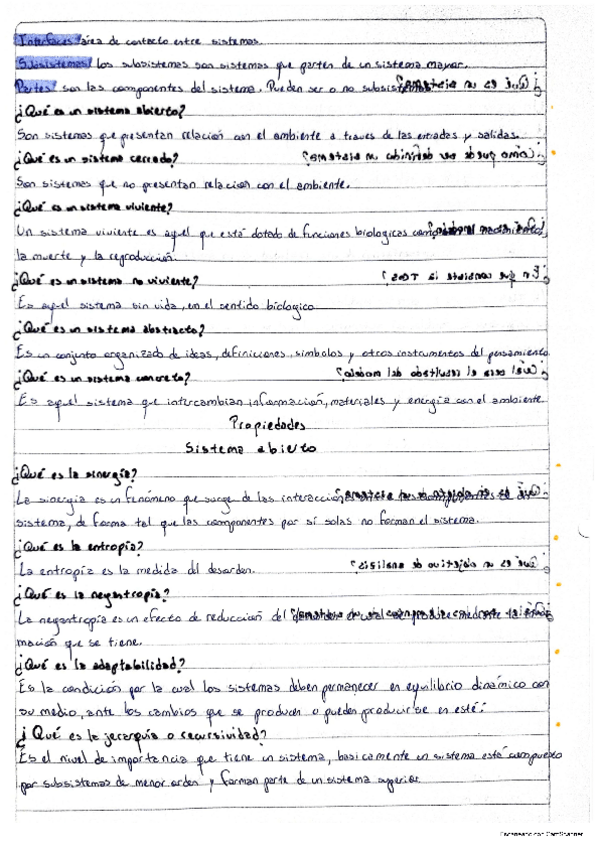 Interfaces área de contacto entre sistemas.
Subsistemas los subsistemas son sistemas que parten de un sistema mayor.
Partes son las componentes del sistema. Pueden ser o no subsistemas.
¿Qué es un sistema abierto?
Son sistemas que presentan relación con el ambiente a traves de las entradas y salidas.
¿Qué es un sistema cerrado?
Son sistemas que no presentan relacion con el ambiente.
¿Qué es un sistema viviente?
Un sistema viviente es aquel que está dotado de funciones biologicas como
la muerte y la reproducción.
¿Qué es un sistema no viviente?
Es aquel sistema sin vida, en el sentido biologico
¿Qué es un sistema abstracto?
Es un conjunto organizado de ideas, definiciones, simbolos y otros instrumentos del pensamiento
¿Qué es un sistema concreto?
Es aquel sistema que intercambian informacion, materiales y energia con el ambiente.
Propiedades
Sistema abierto
¿Qué es la sinergia?
La sinergia es un fenómeno que surge de las
sistema, de forma tal que las componentes por sí solas no forman el sistema.
¿Qué es la entropía?
La entropía es la medida del desorden.
¿Qué es la negantropía?
La negantropía es un efecto de reducción del
mación que se tiene.
¿Qué es la adaptabilidad?
Es la condición por la cual los sistemas deben permanecer en equilibrio dinámico con
su medio, ante los cambios que se producen o pueden producirse en esté.
¿Qué es la jerarquía o recursividad?
Es el nivel de importancia que tiene un sistema, basicamente un sistema está compuesto
por subsistemas de menor orden y forman parte de un sistema superior.
Escaneado con CamScanner